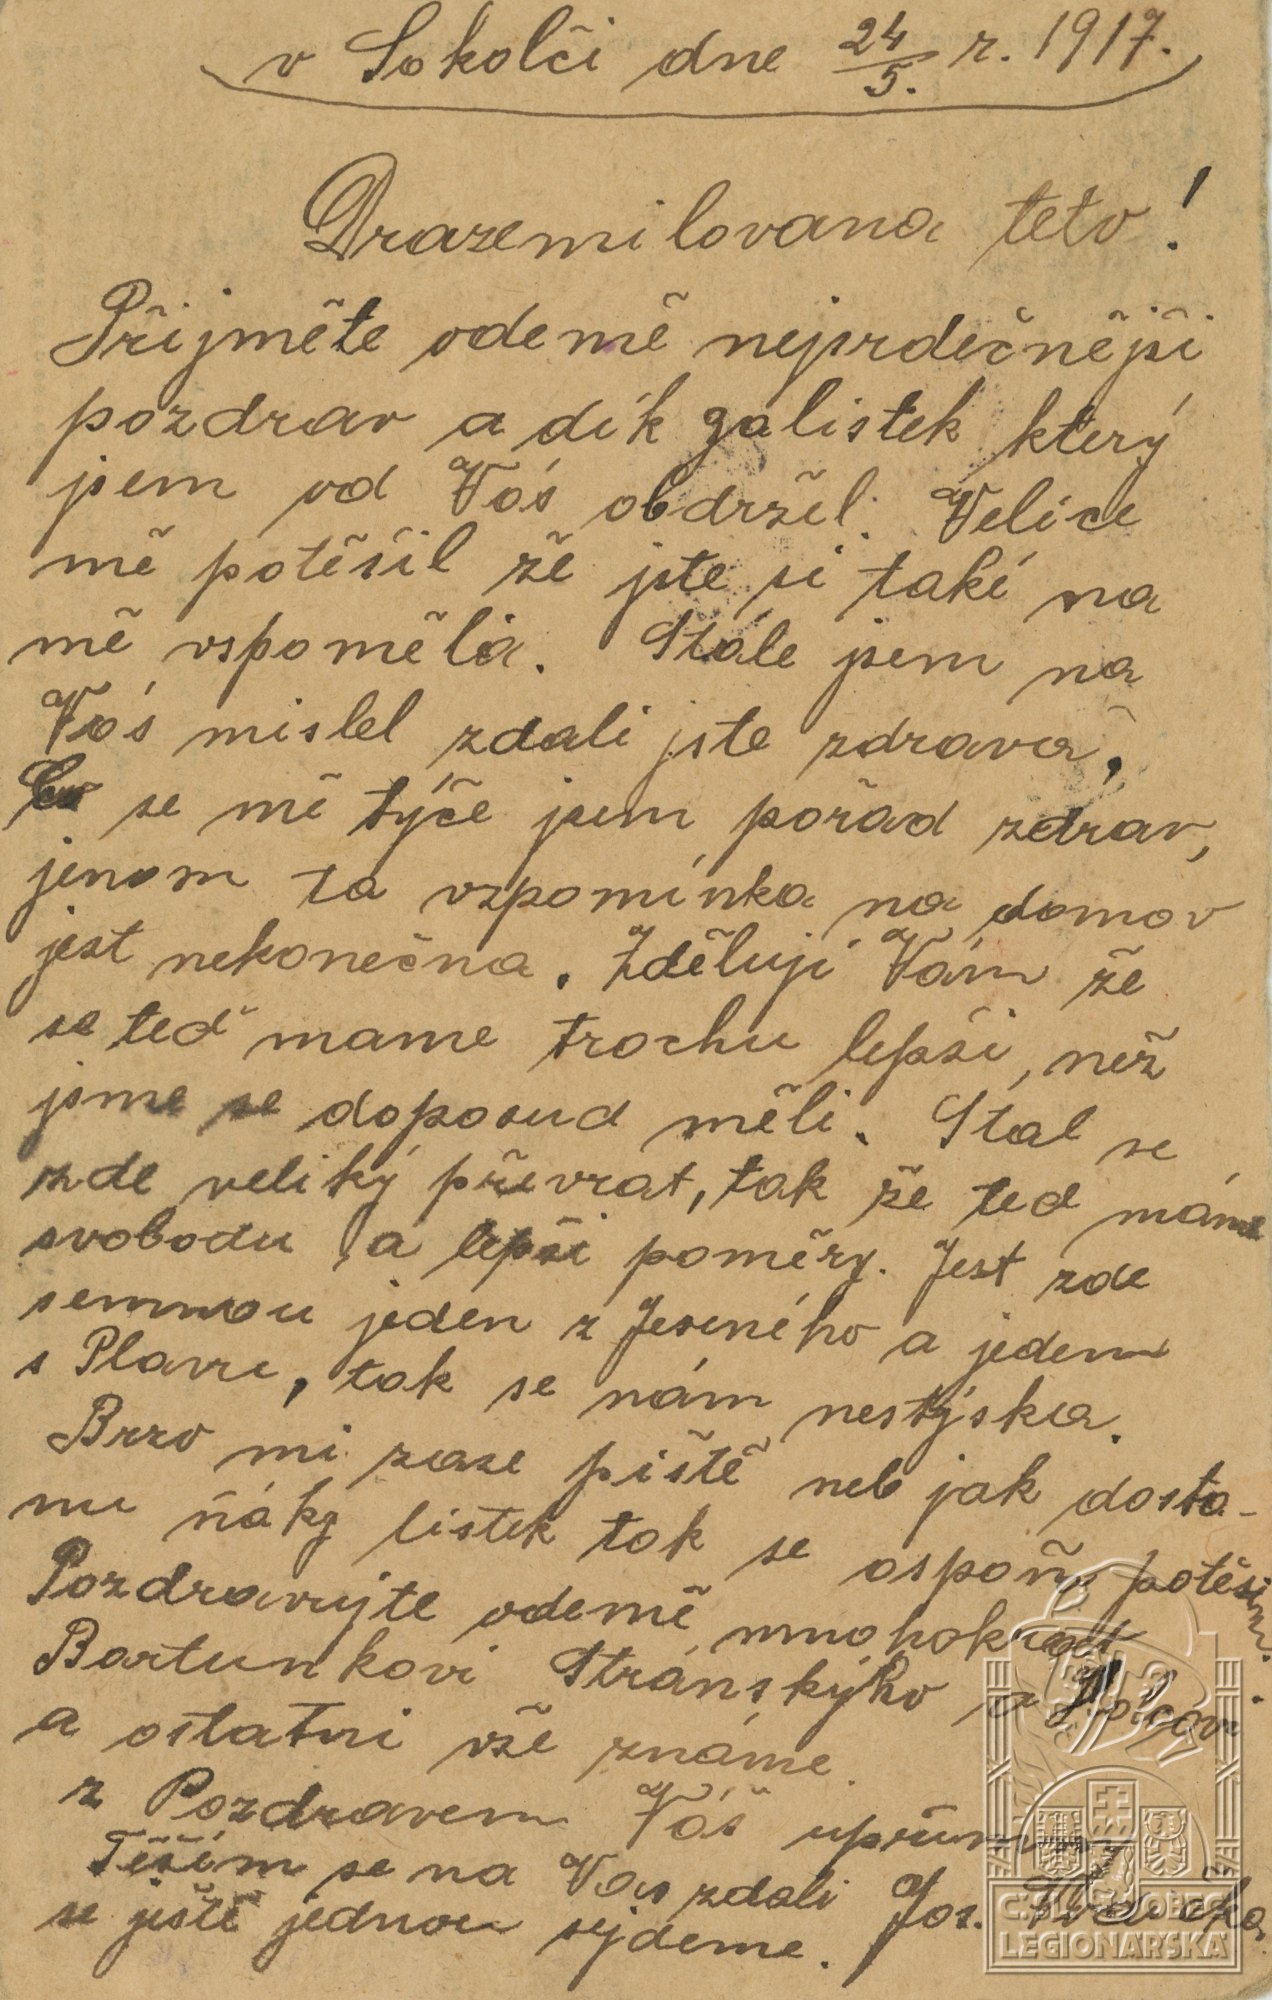 v Sokolči dne 24/5. r. 1917.
Drazemilovana teto!
Přijměte odemě nejsrdečnějši
pozdrav a dík zalistek který
jsem od Vás obdržel. Velice
mě potěšil že jste si také na
mě vspoměla. Stále jsem na
Vás mislel zdali jste zdrava,
Co se mě týče jsem pořád zdráv,
jenom ta vzpomínka na domov
jest nekonečna. Zděluji Vám že
se teď mame trochu lepši, než
jsme se doposud měli. Stal se
zde veliký převrat, tak že ted máme
svobodu a lepši poměry. Jest zde
semnou jeden z Jeseného a jeden
s Plavu, tak se nám nestýska.
Brzo mi zase piště neb jak dosta-
nu ňáky listek tak se aspoň potěšim.
Pozdravujte odemě mnohokrát
Bartunkovi Stránskýho a
a ostatni vše známe.
z Pozdravem Váš upřímný
Těším se na Vas zdali Jos.
se ještě jednou sejdeme.
Č.SL. OBEC
LEGIONÁŘSKÁ